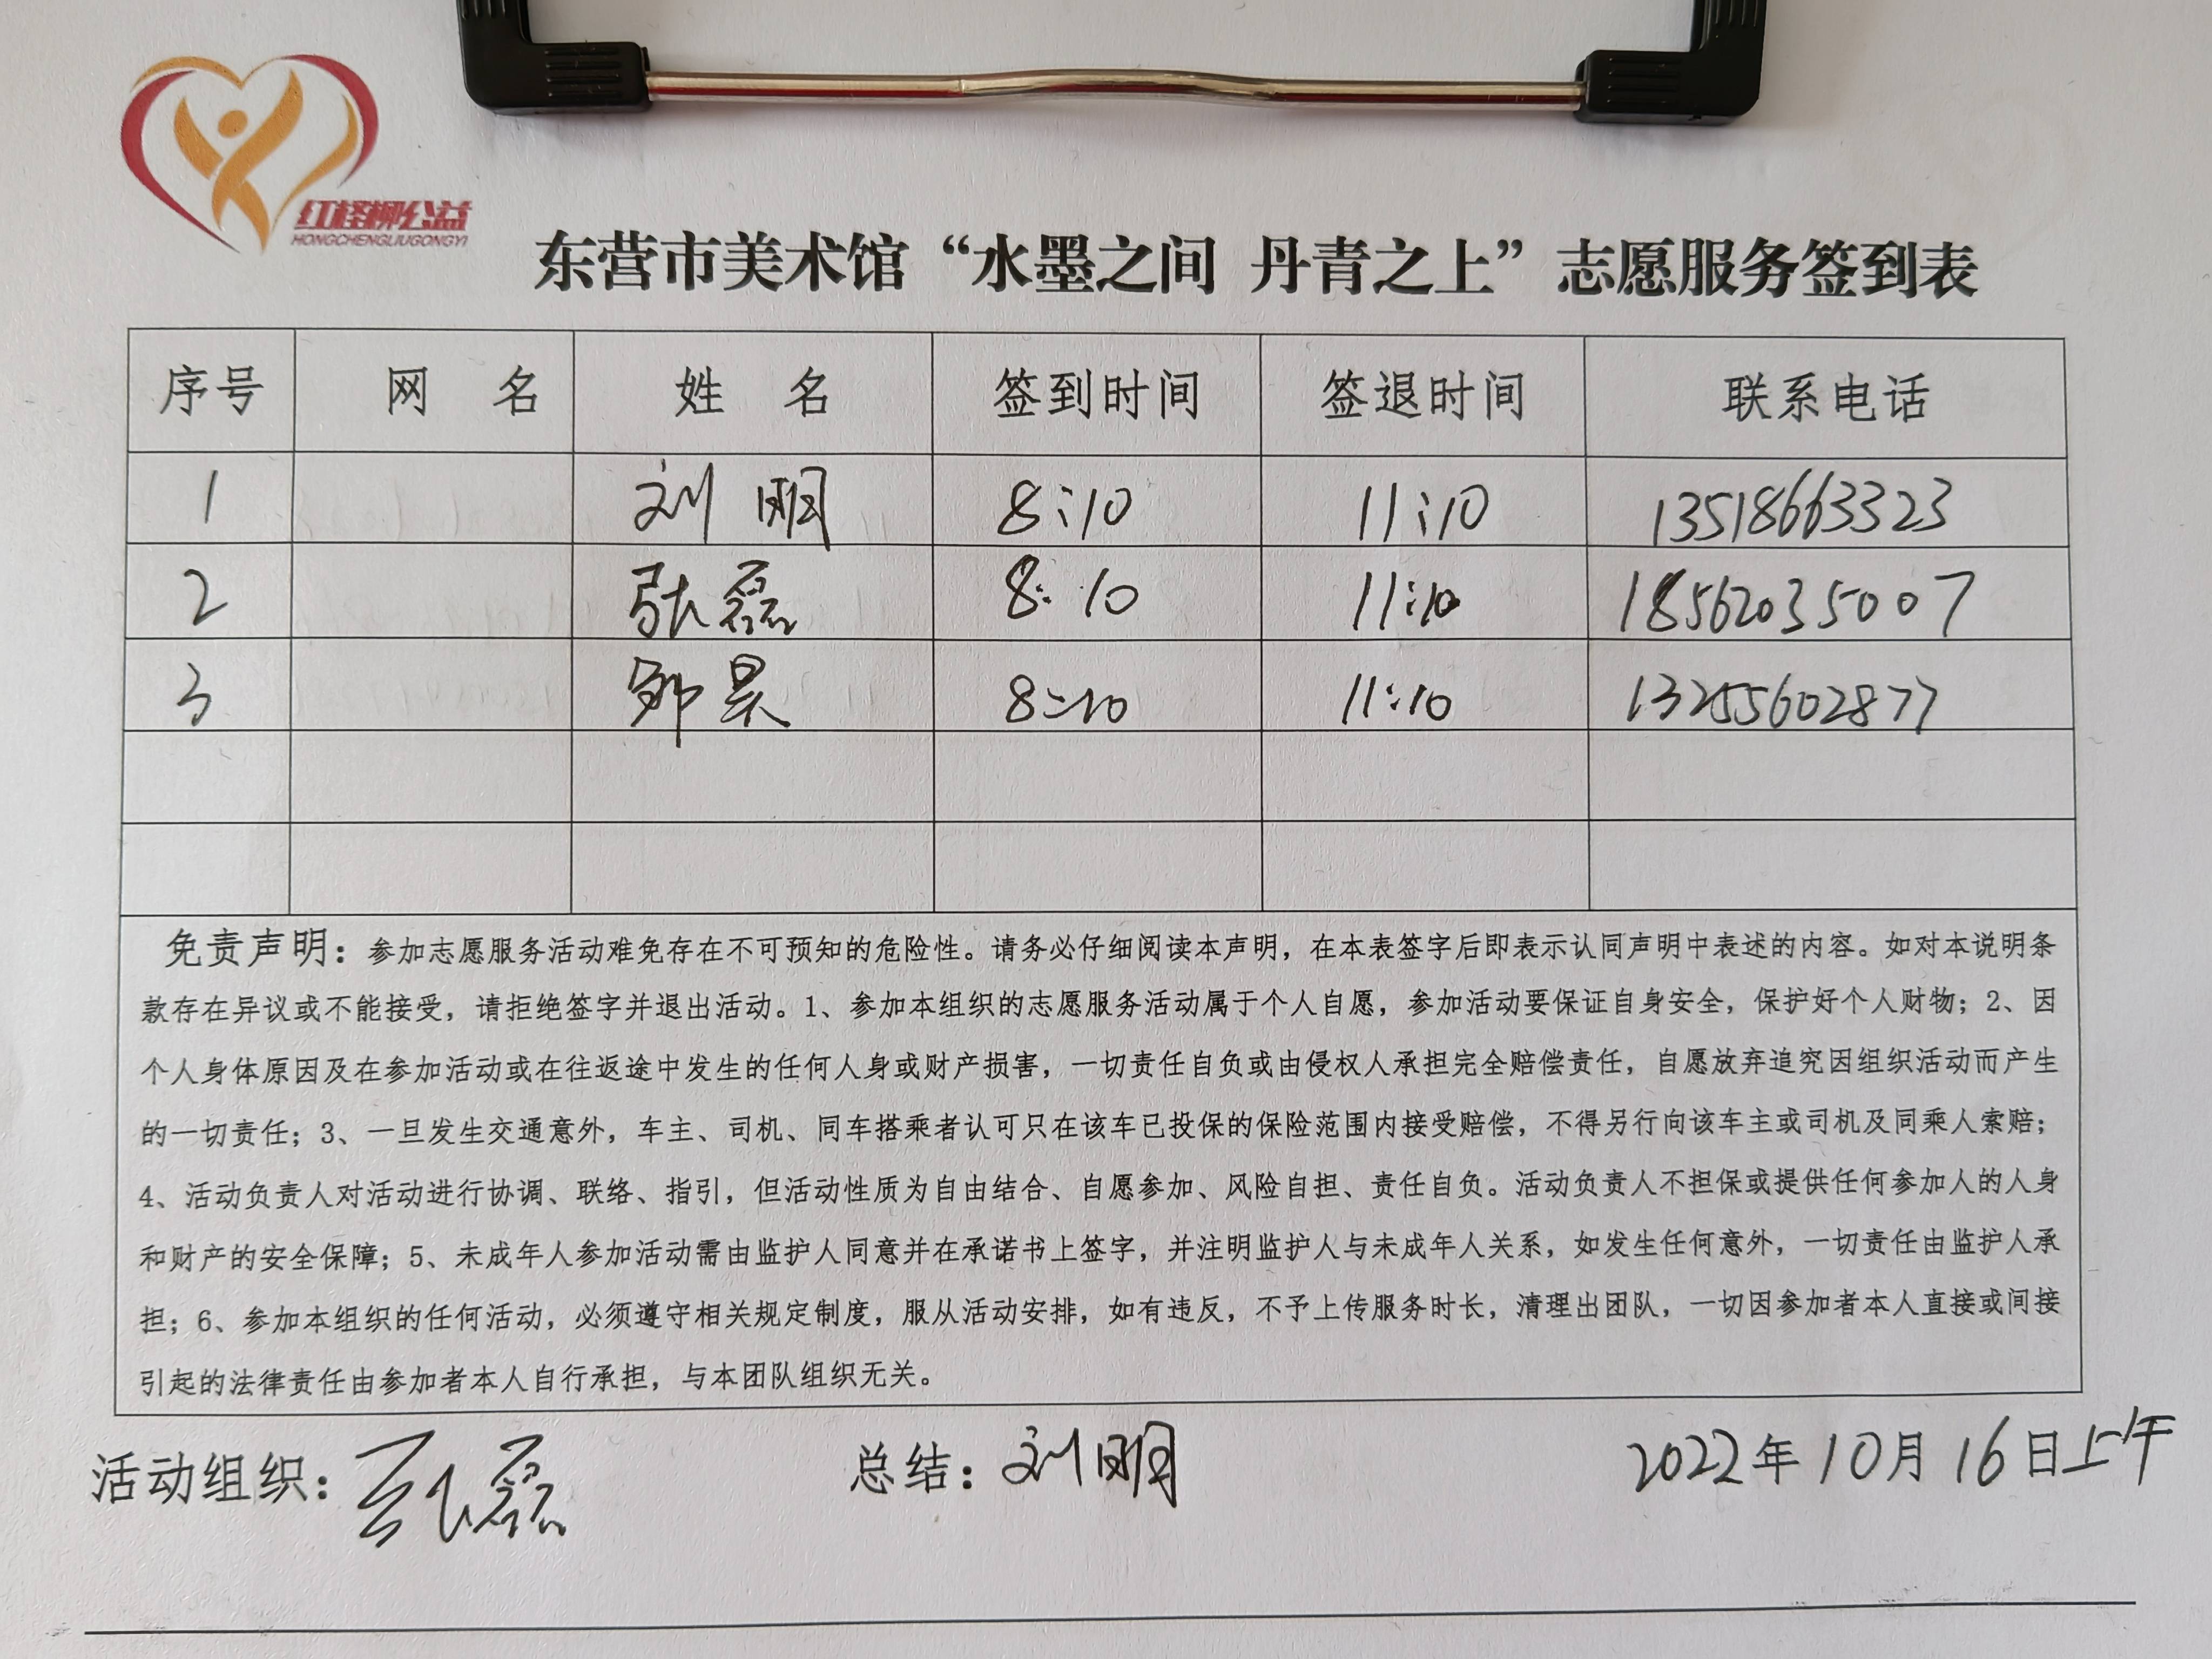 红柽柳公益
HONGCHENGLIUGONGYI
东营市美术馆“水墨之间 丹青之上”志愿服务签到表
序号 网 名 姓 名 签到时间 签退时间 联系电话
1 刘明 8:10 11:10 13518663323
2 张磊 8:10 11:10 18562035007
3 邹昊 8:10 11:10 13255602877
免责声明：参加志愿服务活动难免存在不可预知的危险性。请务必仔细阅读本声明，在本表签字后即表示认同声明中表述的内容。如对本说明条
款存在异议或不能接受，请拒绝签字并退出活动。1、参加本组织的志愿服务活动属于个人自愿，参加活动要保证自身安全，保护好个人财物；2、因
个人身体原因及在参加活动或在往返途中发生的任何人身或财产损害，一切责任自负或由侵权人承担完全赔偿责任，自愿放弃追究因组织活动而产生
的一切责任；3、一旦发生交通意外，车主、司机、同车搭乘者认可只在该车已投保的保险范围内接受赔偿，不得另行向该车主或司机及同乘人索赔；
4、活动负责人对活动进行协调、联络、指引，但活动性质为自由结合、自愿参加、风险自担、责任自负。活动负责人不担保或提供任何参加人的人身
和财产的安全保障；5、未成年人参加活动需由监护人同意并在承诺书上签字，并注明监护人与未成年人关系，如发生任何意外，一切责任由监护人承
担；6、参加本组织的任何活动，必须遵守相关规定制度，服从活动安排，如有违反，不予上传服务时长，清理出团队，一切因参加者本人直接或间接
引起的法律责任由参加者本人自行承担，与本团队组织无关。
活动组织：张磊 总结：刘明 2022年10月16日上午